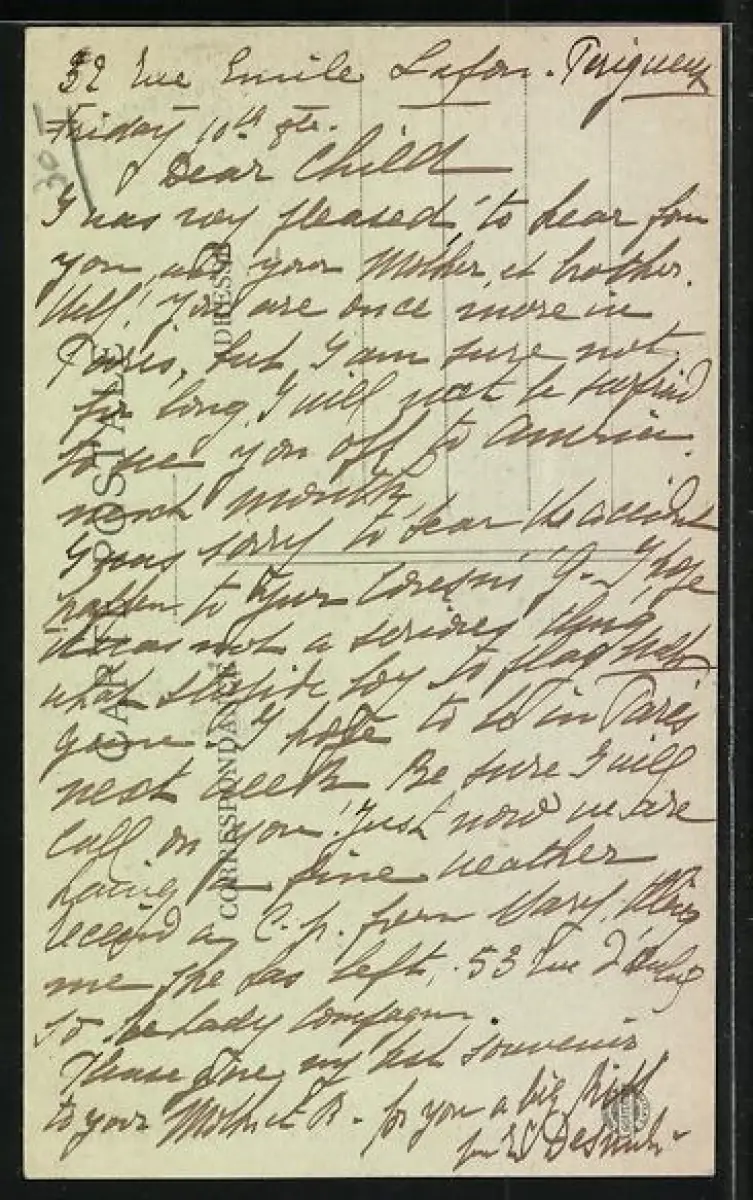 32 Rue Emile Lafon. Perigueux
Friday 10th
Dear Child
I was very pleased to hear from
you, and your Mother, et brother.
Well, you are once more in
Paris, but I am sure not
for long, I will not be surprised
to see you off to America
next month,
I was sorry to hear the accident
happen to your Cousin G. I hope
it was not a serious thing,
what stupide boy to play
game. I hope to be in Paris
next week Be sure I will
call on you! Just now we are
having a fine weather
received a C. p. from Mary, telling
me she has left, 53 Rue
to be Lady Compagn
Please give my best souvenir
to your Mother et B. - for you a big kiss
from
CARTE POSTALE
CORRESPONDANCE
ADRESSE
30-